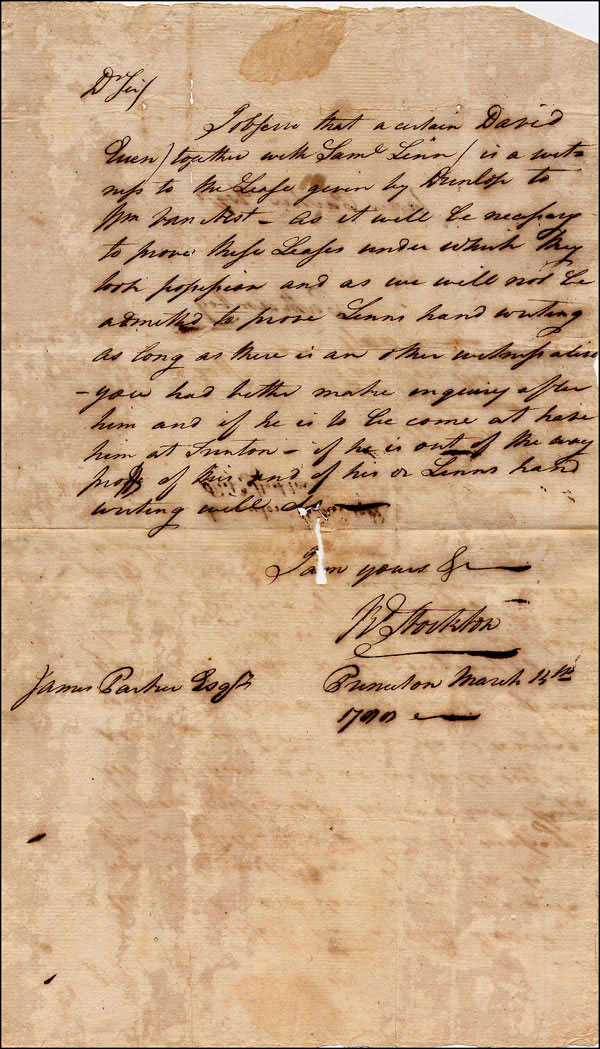 Dr Sir/
I observe that a certain David
Euen / together with Saml Linn / is a wit-
ness to the Lease given by Dunlop to
Wm Van Nest - as it will be necessary
to prove these Leases under which they
took possession and as we will not be
admitted to prove Linns hand writing
as long as there is an other witness alive
- you had better make inquiry after
him and if he is to be come at have
him at Trenton - if he is out of the way
proff of this and of his or Linns hand
writing will do
I am yours &c
Rd Stockton
James Parker Esqr
Princeton March